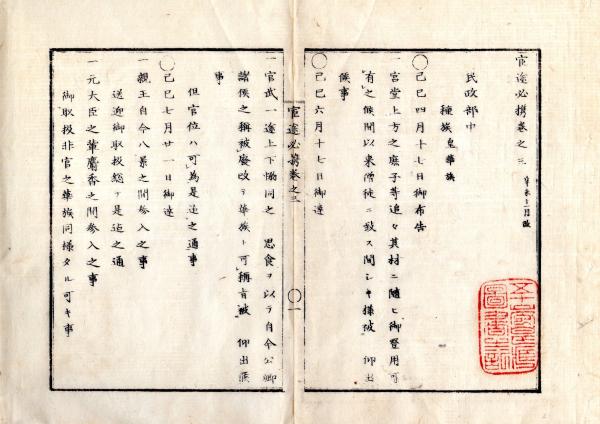 官途必携巻之三
民政部中
種族 皇 華族
〇己巳四月十七日御布告
一宮堂上方之庶子等追々其材ニ随ヒ御登用可
有之候間以来僧徒ニ致ス間シキ様被 仰出
候事
〇己巳六月十七日御達
官途必携巻之三
〇一
一官武一途上下協同之 思食ヲ以テ自今公卿
諸侯之称被廃改テ華族ト可称旨被 仰出候
事
但官位ハ可為是迄之通事
〇己巳七月廿一日御達
一親王自今八景之間参入之事
送迎御取扱総テ是迄之通
一元大臣之華麝香之間参入之事
御取扱非官之華族同様タル可キ事